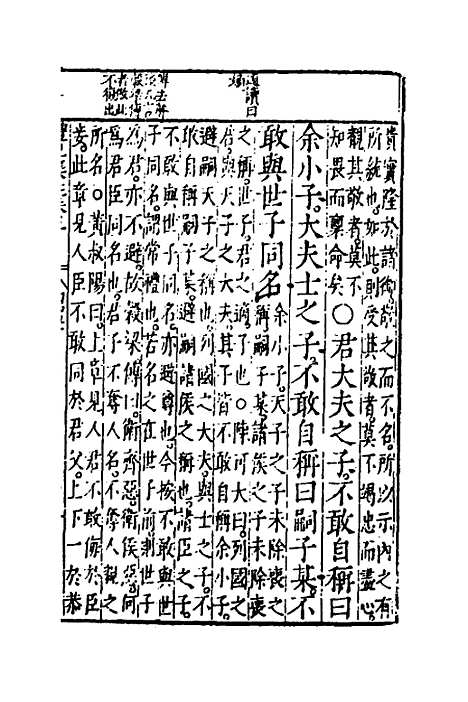 適讀曰
嫡
者倣此
不復出
於諸御之而不名所以示內之有
所統也如此則受其敬者莫不竭忠而盡心
觀其敬者莫不
知畏而稟命矣○君大夫之子不敢自稱曰
余小子大夫士之子不敢自稱曰嗣子某不
敢與世子同名余小子天子之子未除喪之
稱嗣子某諸侯之子未除喪
之稱世子君之適子也○陳可大曰列國之
君與天子之大夫其下皆不敢自稱余小子
避嗣天子之稱也列國之大夫與士之子不
敢自稱嗣子某避嗣諸侯之稱也諸臣之子
不敢與世子同名亦避尊也今按不敢與世
子同名謂常禮也若名之在世子前則世子
為君亦不避故穀梁傳曰衛齊惡衛侯惡何
為君臣同名也君子不奪人名不奪人親之
所名○黃叔陽曰上章見人君不敢侮於臣
此章見人臣不敢同於君父上下一於恭